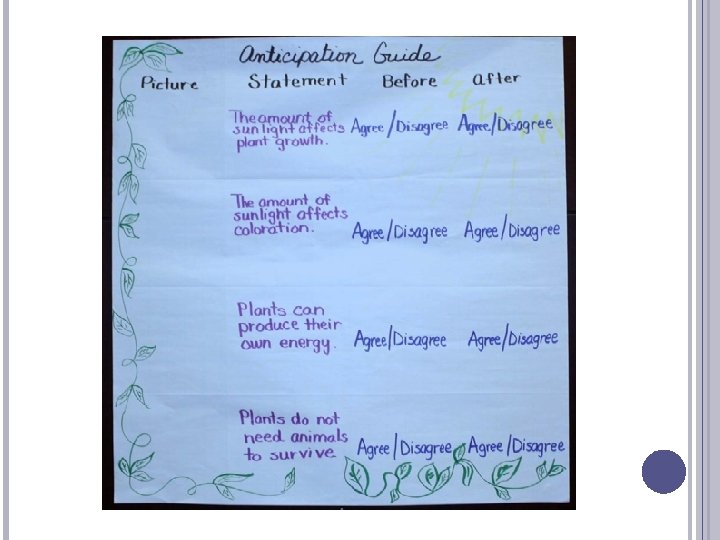 Anticipation Guide
Picture Statement Before After
The amount of
sunlight affects Agree/Disagree Agree/Disagree
plant growth.
The amount of
sunlight affects
coloration. Agree/Disagree Agree/Disagree
Plants can
produce their
own energy. Agree/Disagree Agree/Disagree
Plants do not
need animals
to survive Agree/Disagree Agree/Disagree